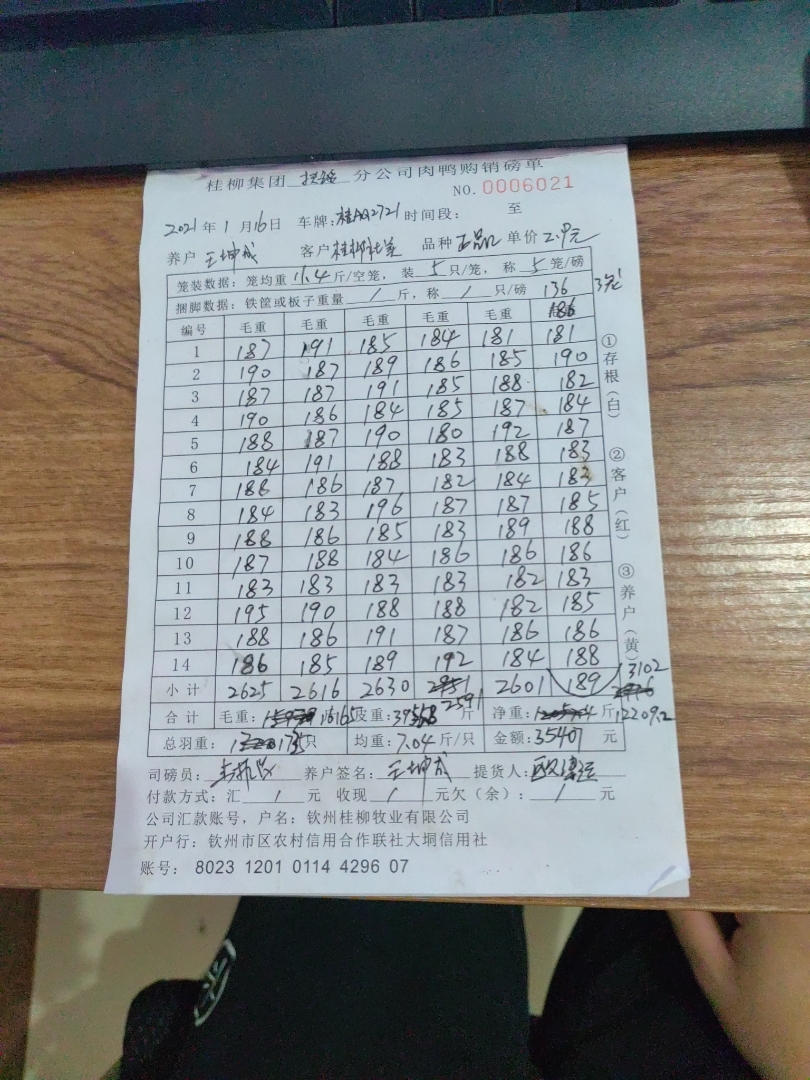 桂柳集团 分公司肉鸭购销磅单
NO. 0006021
2021年1月16日 车牌:桂AQ2721 时间段: 至
养户 王坤成 客户 桂柳 品种 正品 单价 2.9元
笼装数据:笼均重 斤/空笼,装 5 只/笼,称 5 笼/磅
捆脚数据:铁筐或板子重量 / 斤,称 / 只/磅 136
编号 毛重 毛重 毛重 毛重 毛重 186
1 187 191 185 184 181 181
2 190 187 189 186 185 190
3 187 187 191 185 188 182
4 190 186 184 185 187 184
5 188 187 190 180 192 187
6 184 191 188 183 188 183
7 186 187 182 184 183
8 184 183 196 187 187 185
9 188 186 185 183 189 188
10 187 188 184 186 186 186
11 183 183 183 183 182 183
12 195 190 188 188 182 185
13 188 186 191 187 186 186
14 186 185 189 192 184 188
小计 2625 2616 2630 2591 2601 189 3102
合计 毛重: 16165 皮重: 斤 净重: 斤 12209.2
总羽重: 只 均重:7.04斤/只 金额:35407 元
司磅员: 养户签名:王坤成 提货人:
付款方式:汇 / 元 收现 / 元欠(余): / 元
公司汇款账号,户名:钦州桂柳牧业有限公司
开户行:钦州市区农村信用合作联社大垌信用社
账号: 8023 1201 0114 4296 07
①存根(白) ②客户(红) ③养户(黄)